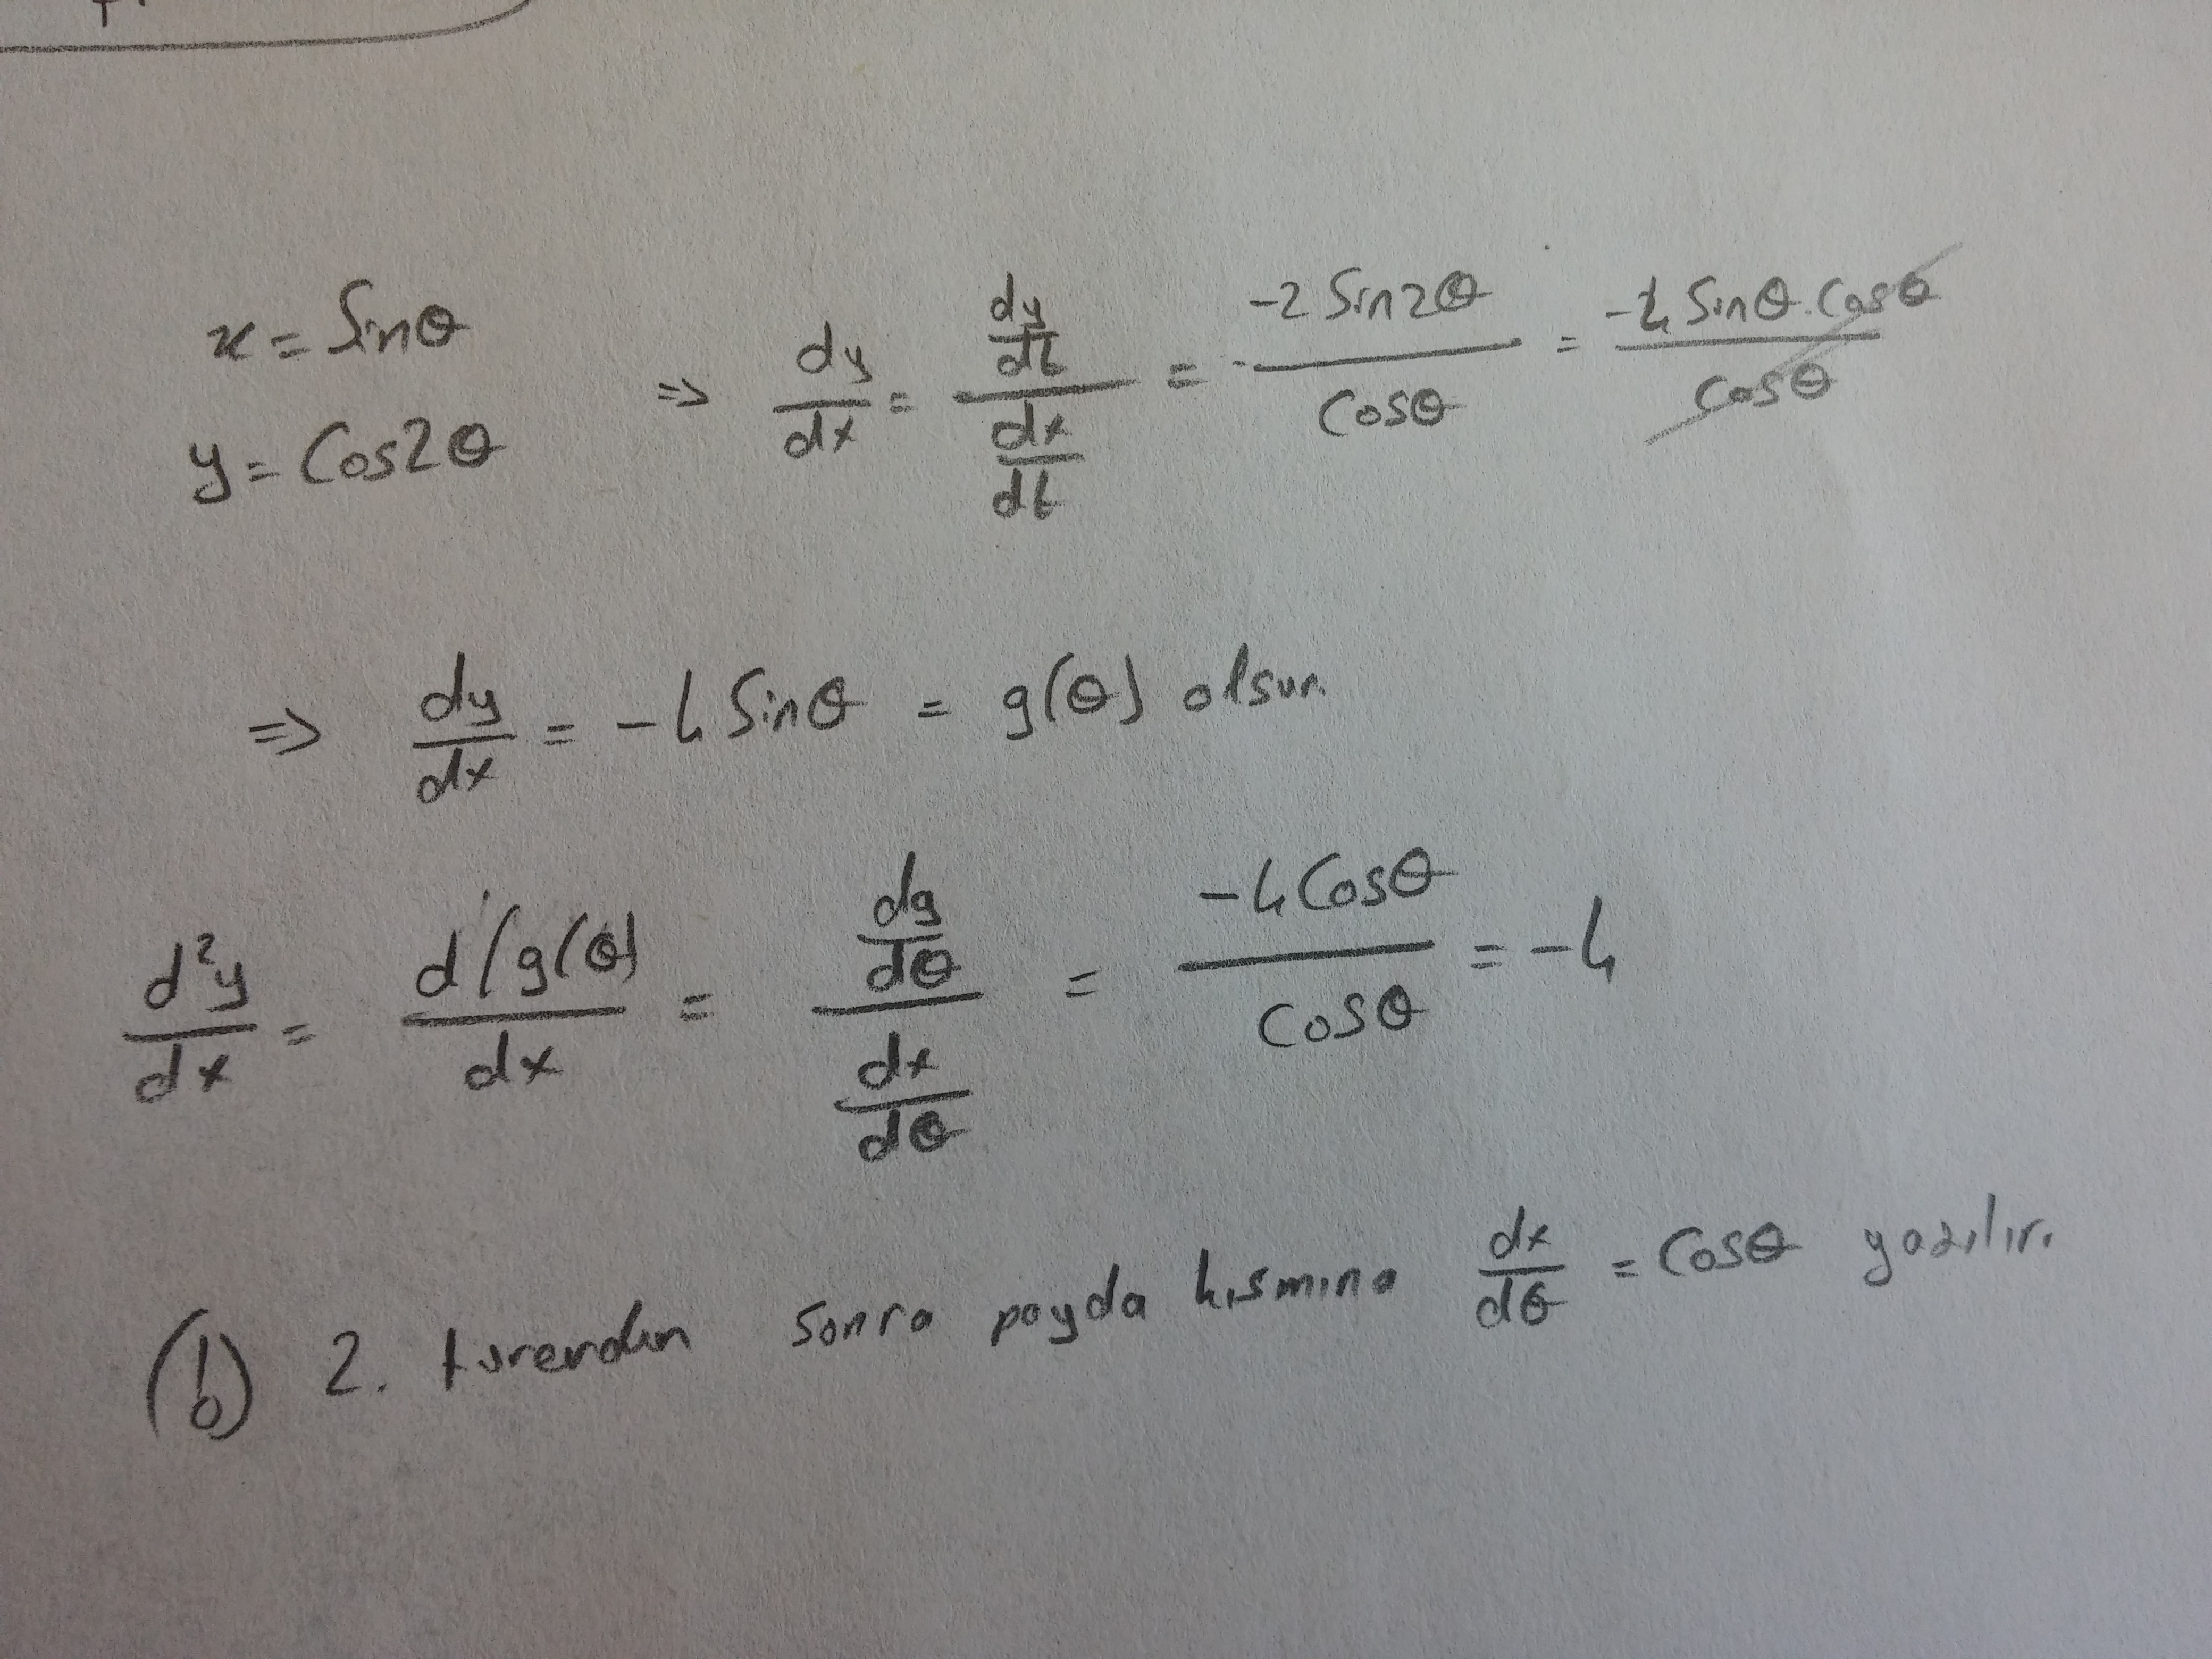 x = Sinθ
y = Cos2θ
⇒ dy/dx = (dy/dt)/(dx/dt) = -2 Sin2θ / Cosθ = -4 Sinθ.Cosθ / Cosθ
⇒ dy/dx = -4 Sinθ = g(θ) olsun
d²y/dx = d(g(θ)/dx = (dg/dθ)/(dx/dθ) = -4Cosθ / Cosθ = -4
(!) 2. türevden sonra payda kısmına dx/dθ = Cosθ yazılır.